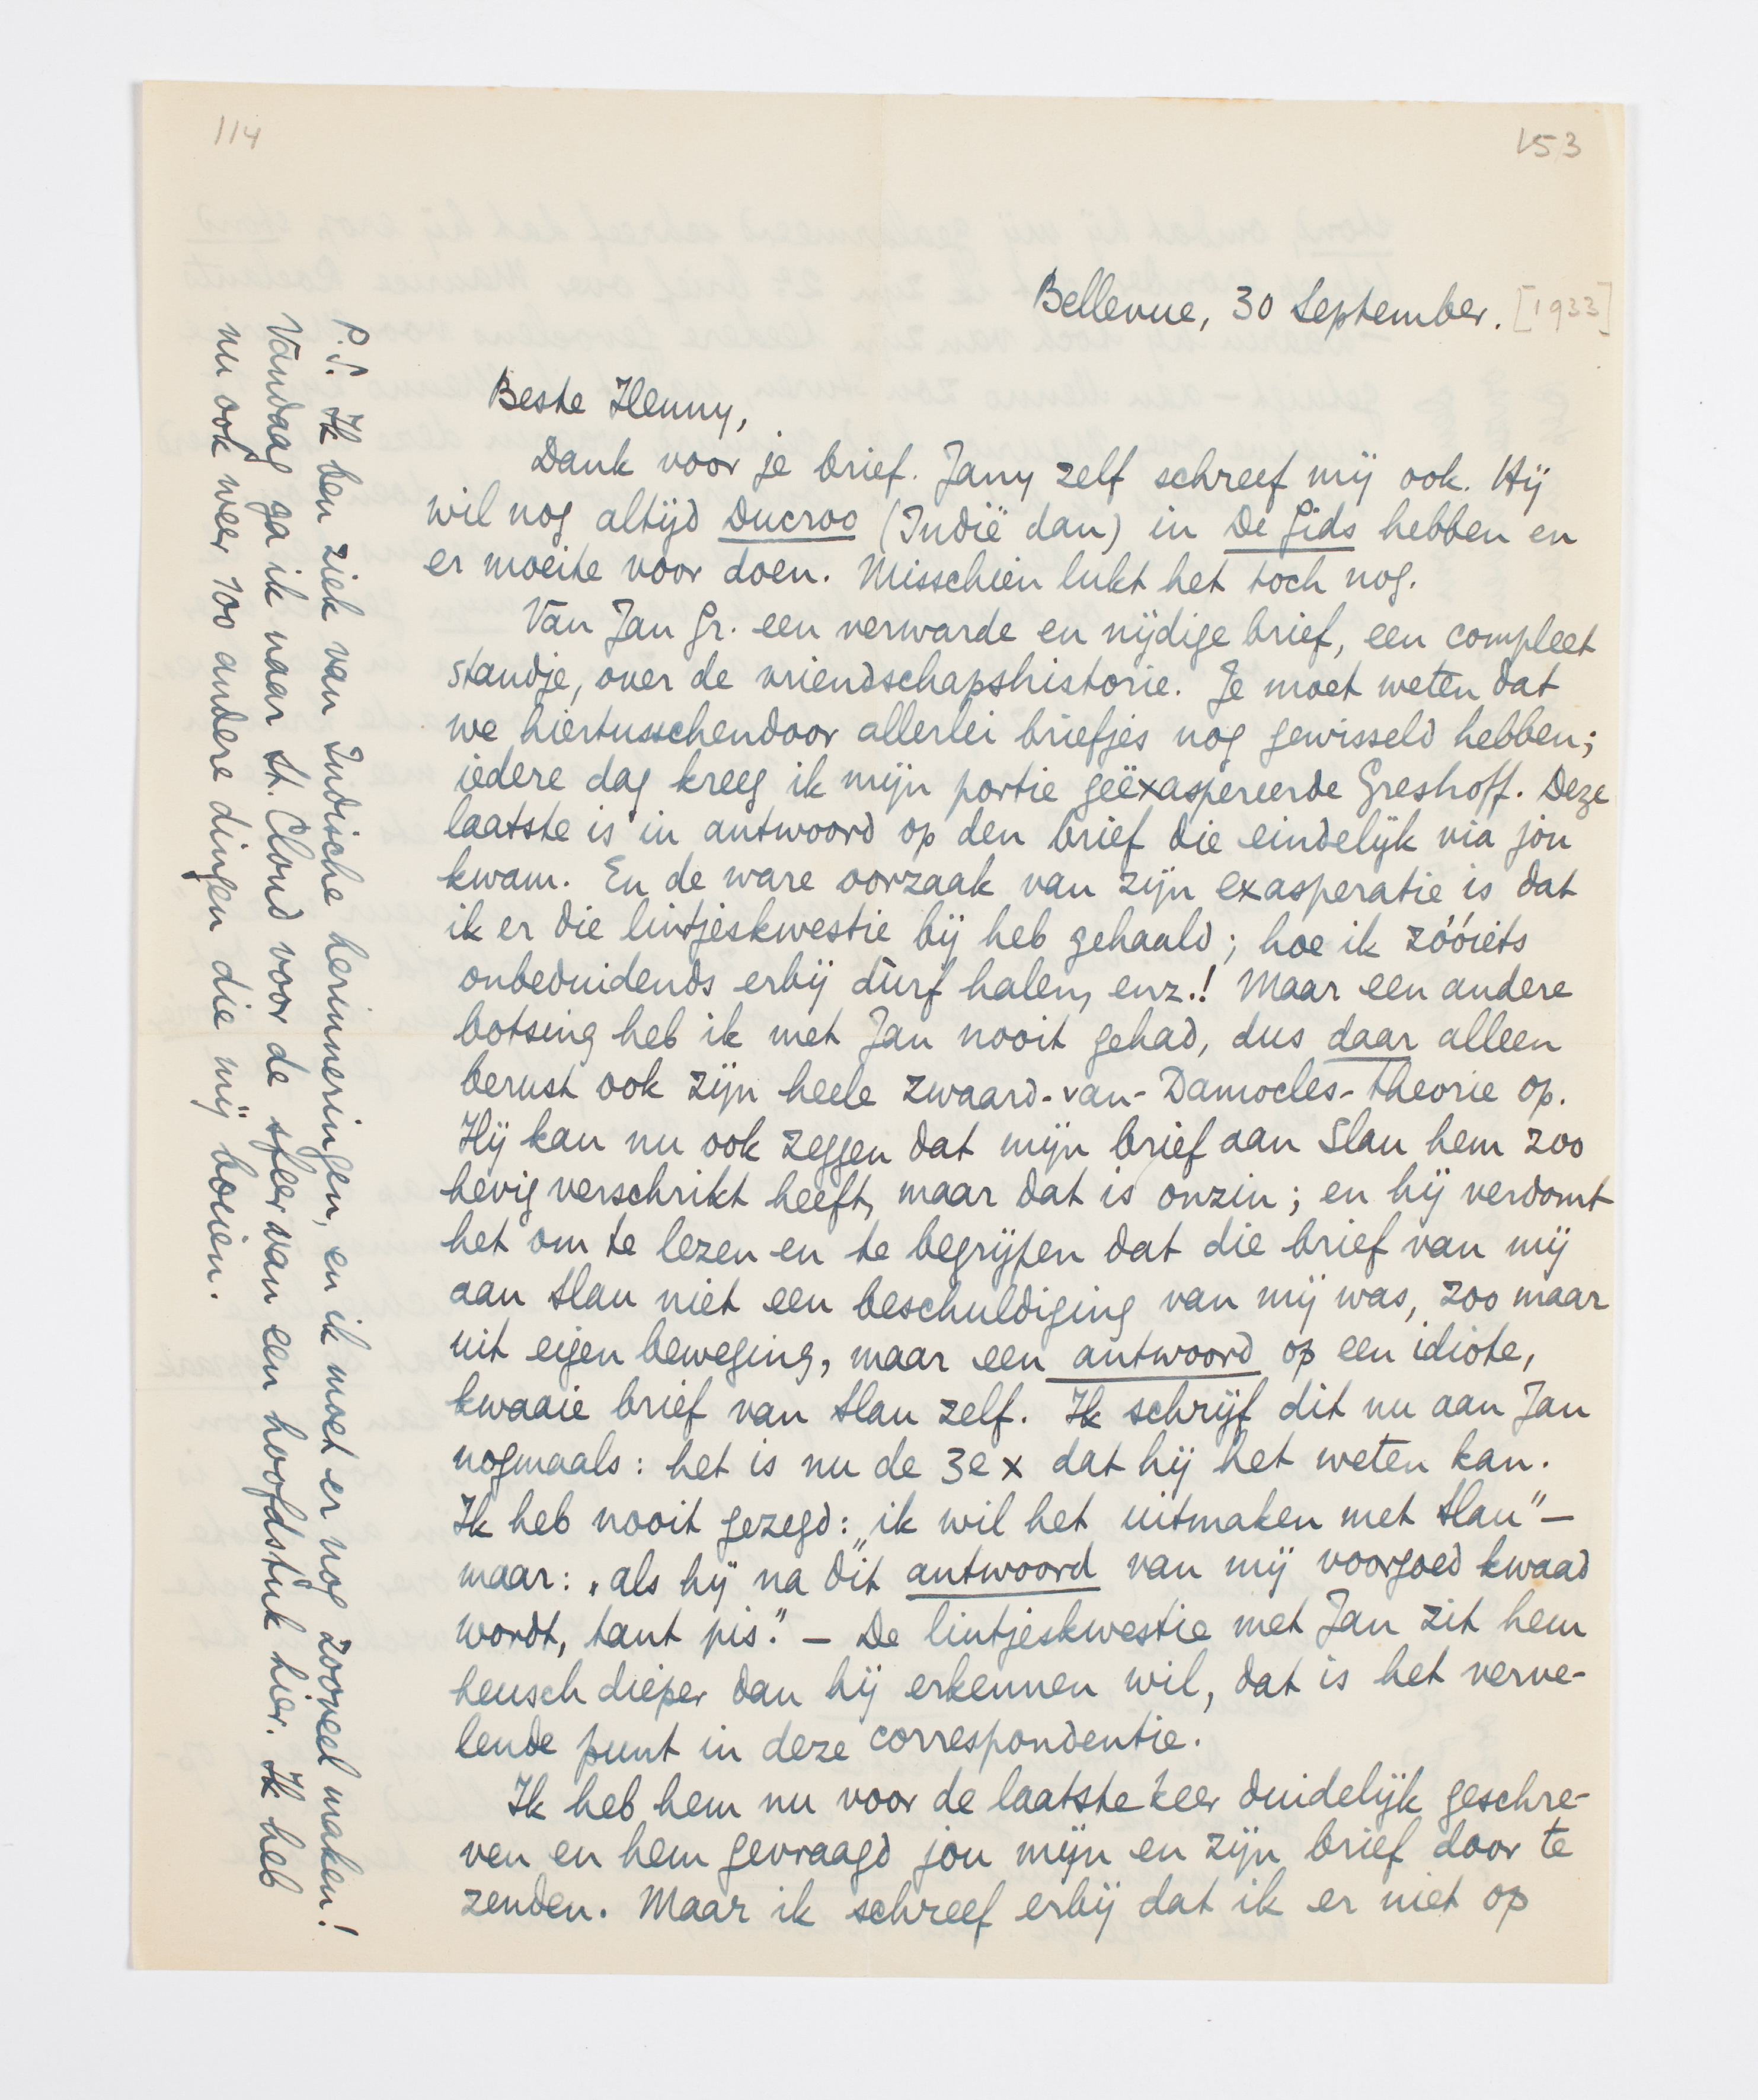 114
153
Bellevue, 30 September. [1933]
Beste Henny,
Dank voor je brief. Jany zelf schreef mij ook. Hij
wil nog altijd Ducroo (Indië dan) in De Gids hebben en
er moeite voor doen. Misschien lukt het toch nog.
Van Jan Gr. een verwarde en nijdige brief, een compleet
standje, over de vriendschapshistorie. Je moet weten dat
we hiertusschendoor allerlei briefjes nog gewisseld hebben;
iedere dag kreeg ik mijn portie geëxaspereerde Greshoff. Deze
laatste is in antwoord op den brief die eindelijk via jou
kwam. En de ware oorzaak van zijn exasperatie is dat
ik er die lintjeskwestie bij heb gehaald; hoe ik zóóiets
onbeduidends erbij durf halen, enz.! Maar een andere
botsing heb ik met Jan nooit gehad, dus daar alleen
berust ook zijn heele zwaard-van-Damocles-theorie op.
Hij kan nu ook zeggen dat mijn brief aan Slau hem zoo
hevig verschrikt heeft, maar dat is onzin; en hij verdomt
het om te lezen en te begrijpen dat die brief van mij
aan Slau niet een beschuldiging van mij was, zoo maar
uit eigen beweging, maar een antwoord op een idiote,
kwaaie brief van Slau zelf. Ik schrijf dit nu aan Jan
nogmaals: het is nu de 3e x dat hij het weten kan.
Ik heb nooit gezegd: „ik wil het uitmaken met Slau” –
maar: „als hij na dit antwoord van mij voorgoed kwaad
wordt, tant pis.” – De lintjeskwestie met Jan zit hem
heusch dieper dan hij erkennen wil, dat is het verve-
lende punt in deze correspondentie.
Ik heb hem nu voor de laatste keer duidelijk geschre-
ven en hem gevraagd jou mijn en zijn brief door te
zenden. Maar ik schreef erbij dat ik er niet op
P.S. Ik ben ziek van Indische herinneringen, en ik moet er nog zooveel maken!
Vandaag ga ik naar St. Cloud voor de sfeer van een hoofdstuk hier. Ik heb
nu ook weer 100 andere dingen die mij boeien.